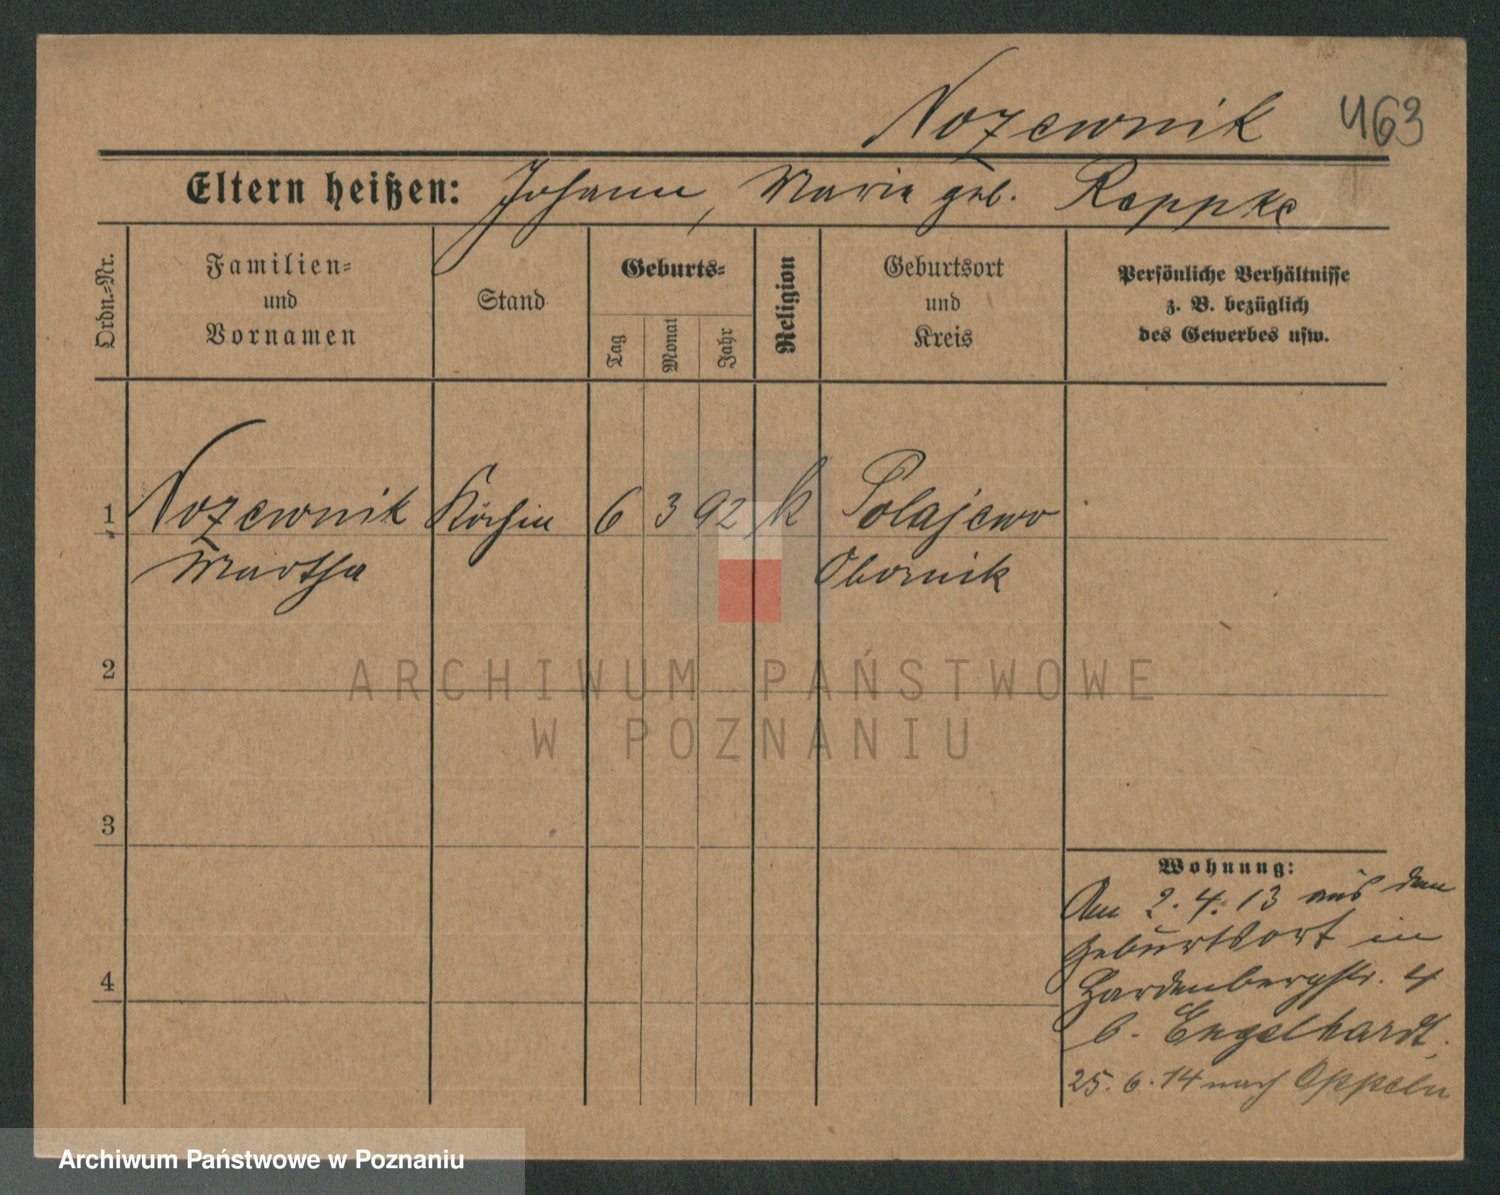 Nozewnik 463
Eltern heißen: Johann, Marie geb. Roppke
Ordn.-Nr.
Familien-
und
Vornamen
Stand
Geburts-
Tag
Monat
Jahr
Religion
Geburtsort
und
Kreis
Persönliche Verhältnisse
z. B. bezüglich
des Gewerbes usw.
1 Nozewnik Köchin 6 3 92 k Polajewo
Martha Obornik
2
3
4
Wohnung:
Am 2.4.13 aus dem
Geburtsort in
Hardenbergstr. 4
b. Engelhardt.
25.6.14 nach Oppeln
ARCHIWUM PAŃSTWOWE
W POZNANIU
Archiwum Państwowe w Poznaniu